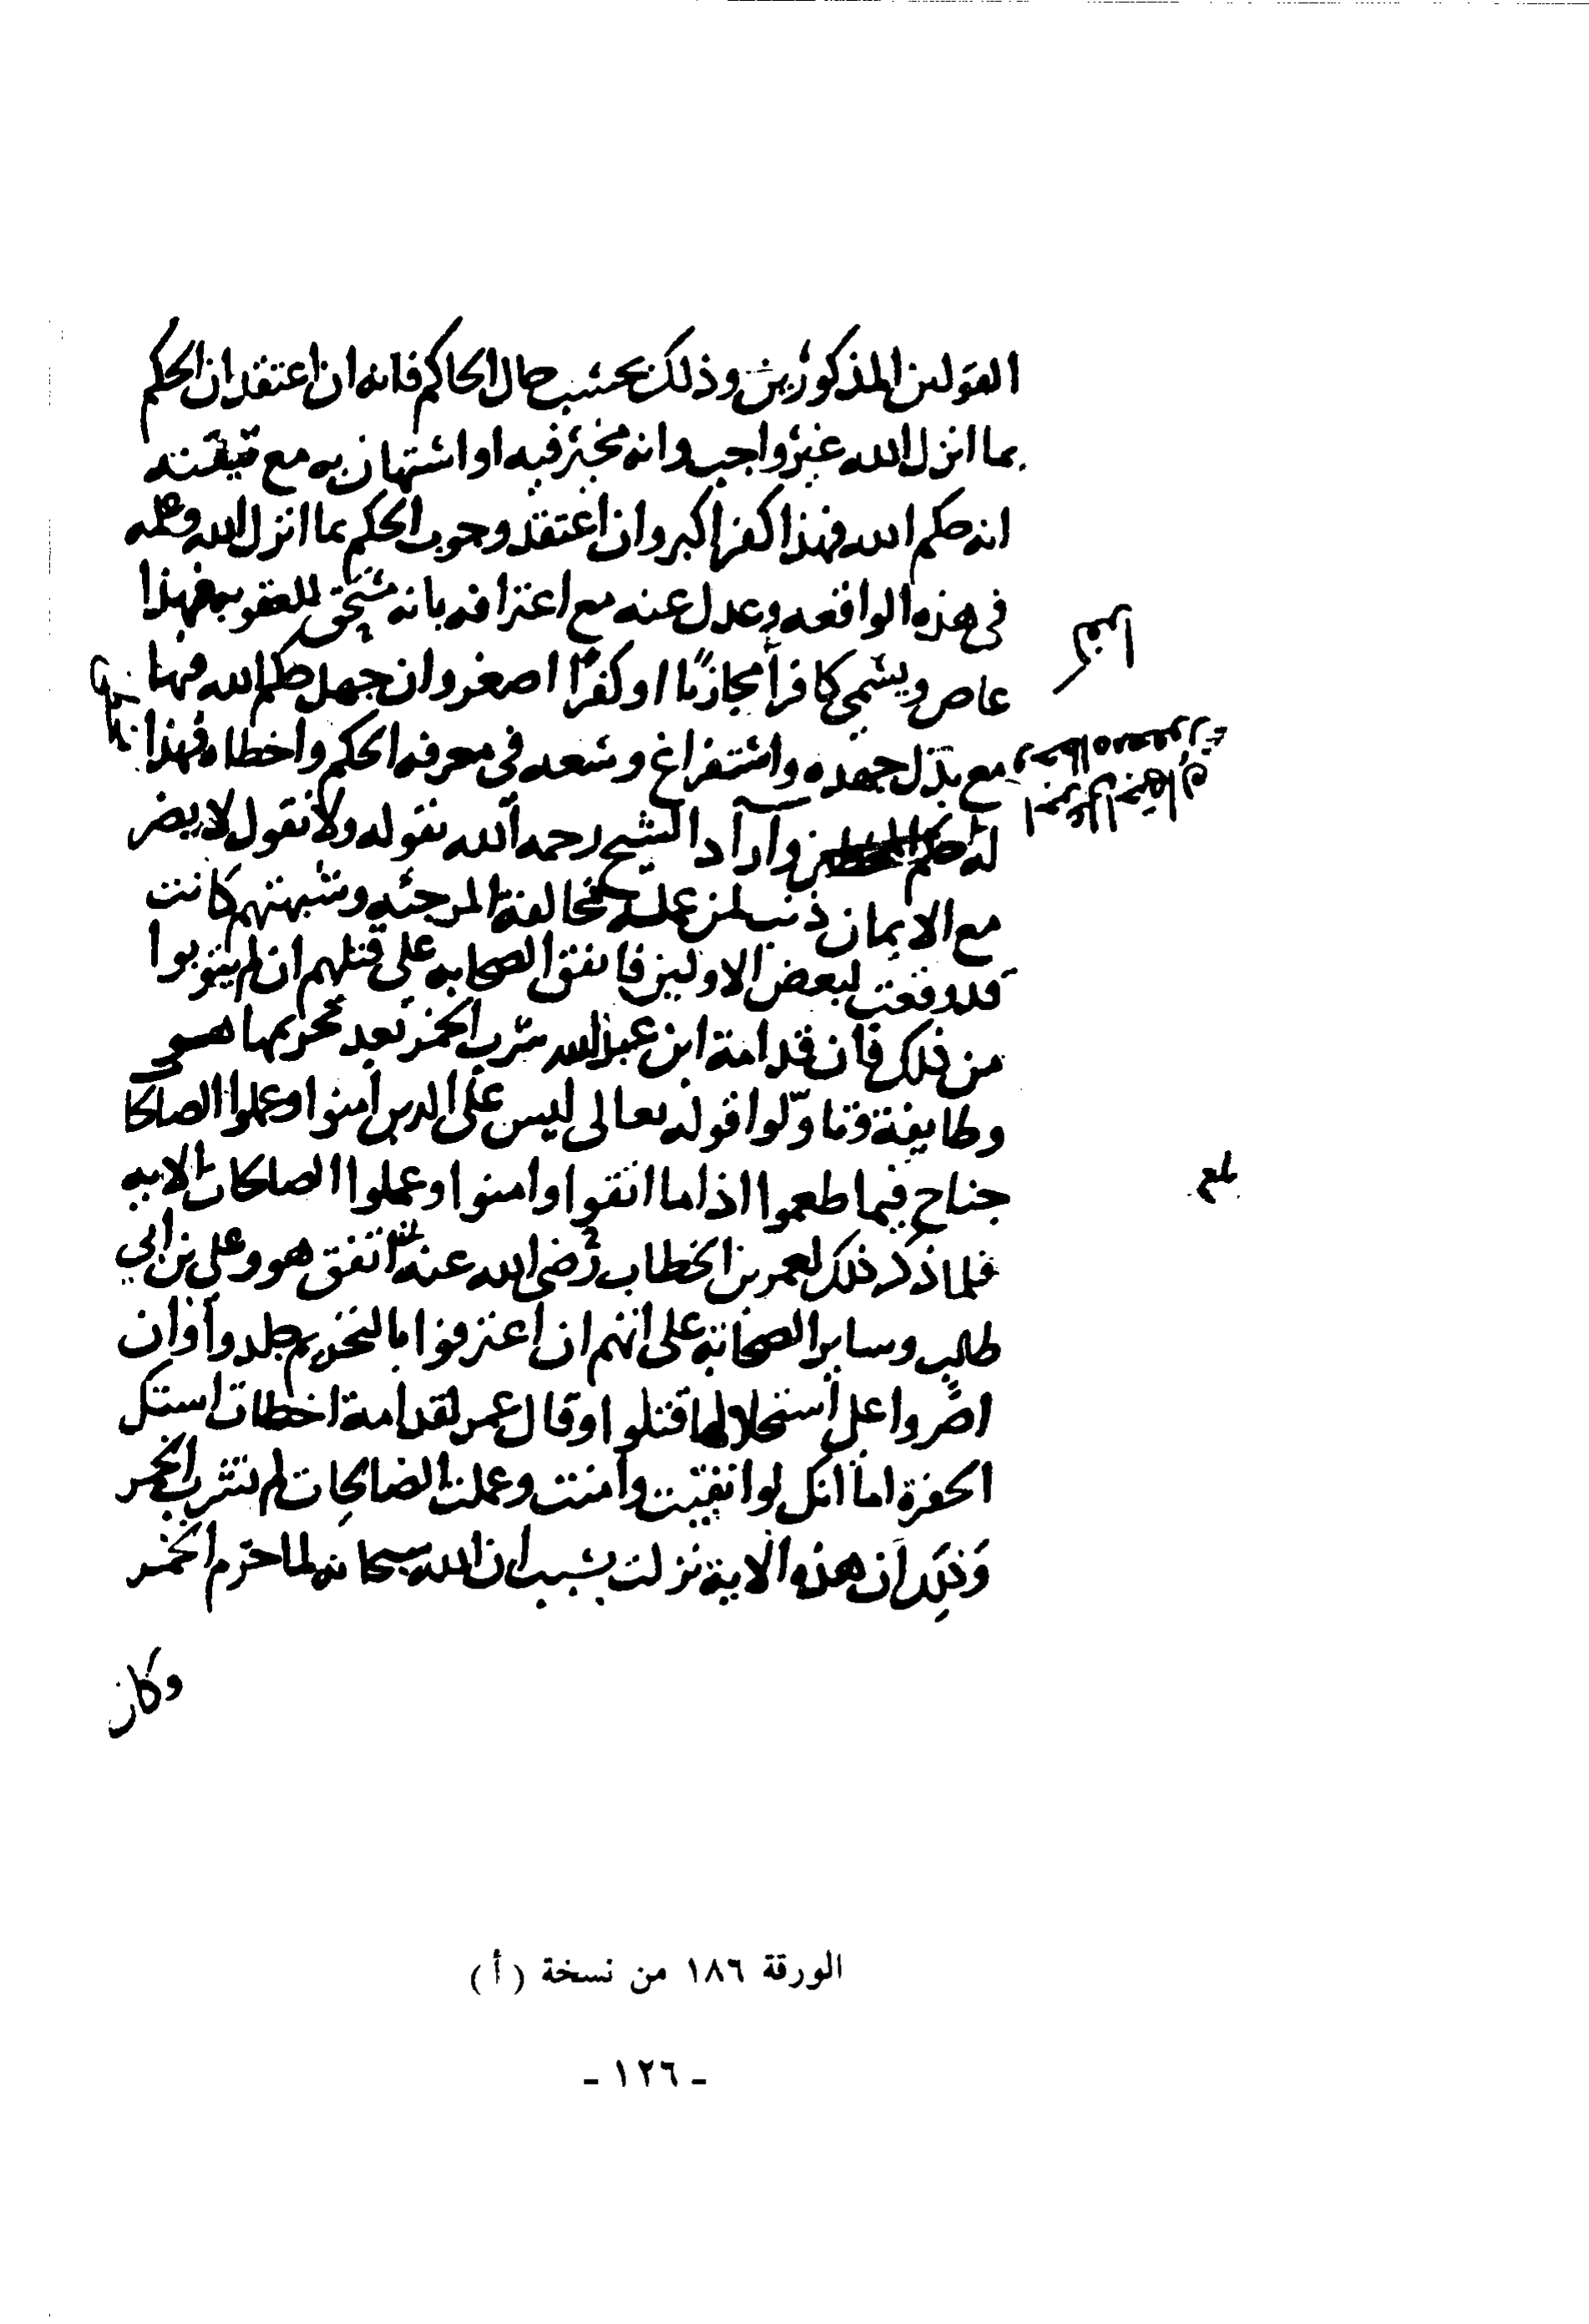 القولين المذكورين وذلك بحسب حال الحاكم فانه ان اعتقد ان الحكم
بما انزل الله غير واجب وانه مخير فيه او استهان به مع تيقنه
انه حكم الله فهذا كفر اكبر وان اعتقد وجوب الحكم بما انزل الله وعلمه
في هذه الواقعه وعدل عنه مع اعترافه بانه مستحق للعقوبه فهذا
عاص ويسمى كافراً مجازيًا او كفرًا اصغر وان جهل حكم الله فيها
مع بذل جهده واستفراغ وسعه في معرفه الحكم واخطاه فهذا
له حكم المخطئين وآراد الشيخ رحمه الله بقوله ولا نقول لا يضر
مع الايمان ذنب لمن عمله مخالفة المرجئه وشبهتهم كانت
قد وقعت لبعض الاولين فاتفق الصحابه على قتلهم ان لم يتوبوا
من ذلك فان قدامة ابن عبد الله شرب الخمر بعد تحريمها هو
وطايفة وتاولوا قوله تعالى ليس على الدين امنوا وعملوا الصالحا
جناح فيما طعموا اذا ما اتقوا وامنوا وعملوا الصالحات الايه
فلما ذكر ذلك لعمر بن الخطاب رضي الله عنه اتفق هو وعلي بن ابي
طالب وساير الصحابة على انهم ان اعترفوا بالتحريم جلدوا وان
اصروا على استحلالها قتلوا وقال عمر لقدامة اخطات استك
الحفرة اما انك لو اتقيت وامنت وعملت الصالحات لم تشرب الخمر
وذلك ان هذه الاية نزلت بسبب ان الله سبحانه لما حرم الخمر
وكان
بلغ
الورقة ١٨٦ من نسخة (أ)
- ١٢٦ -